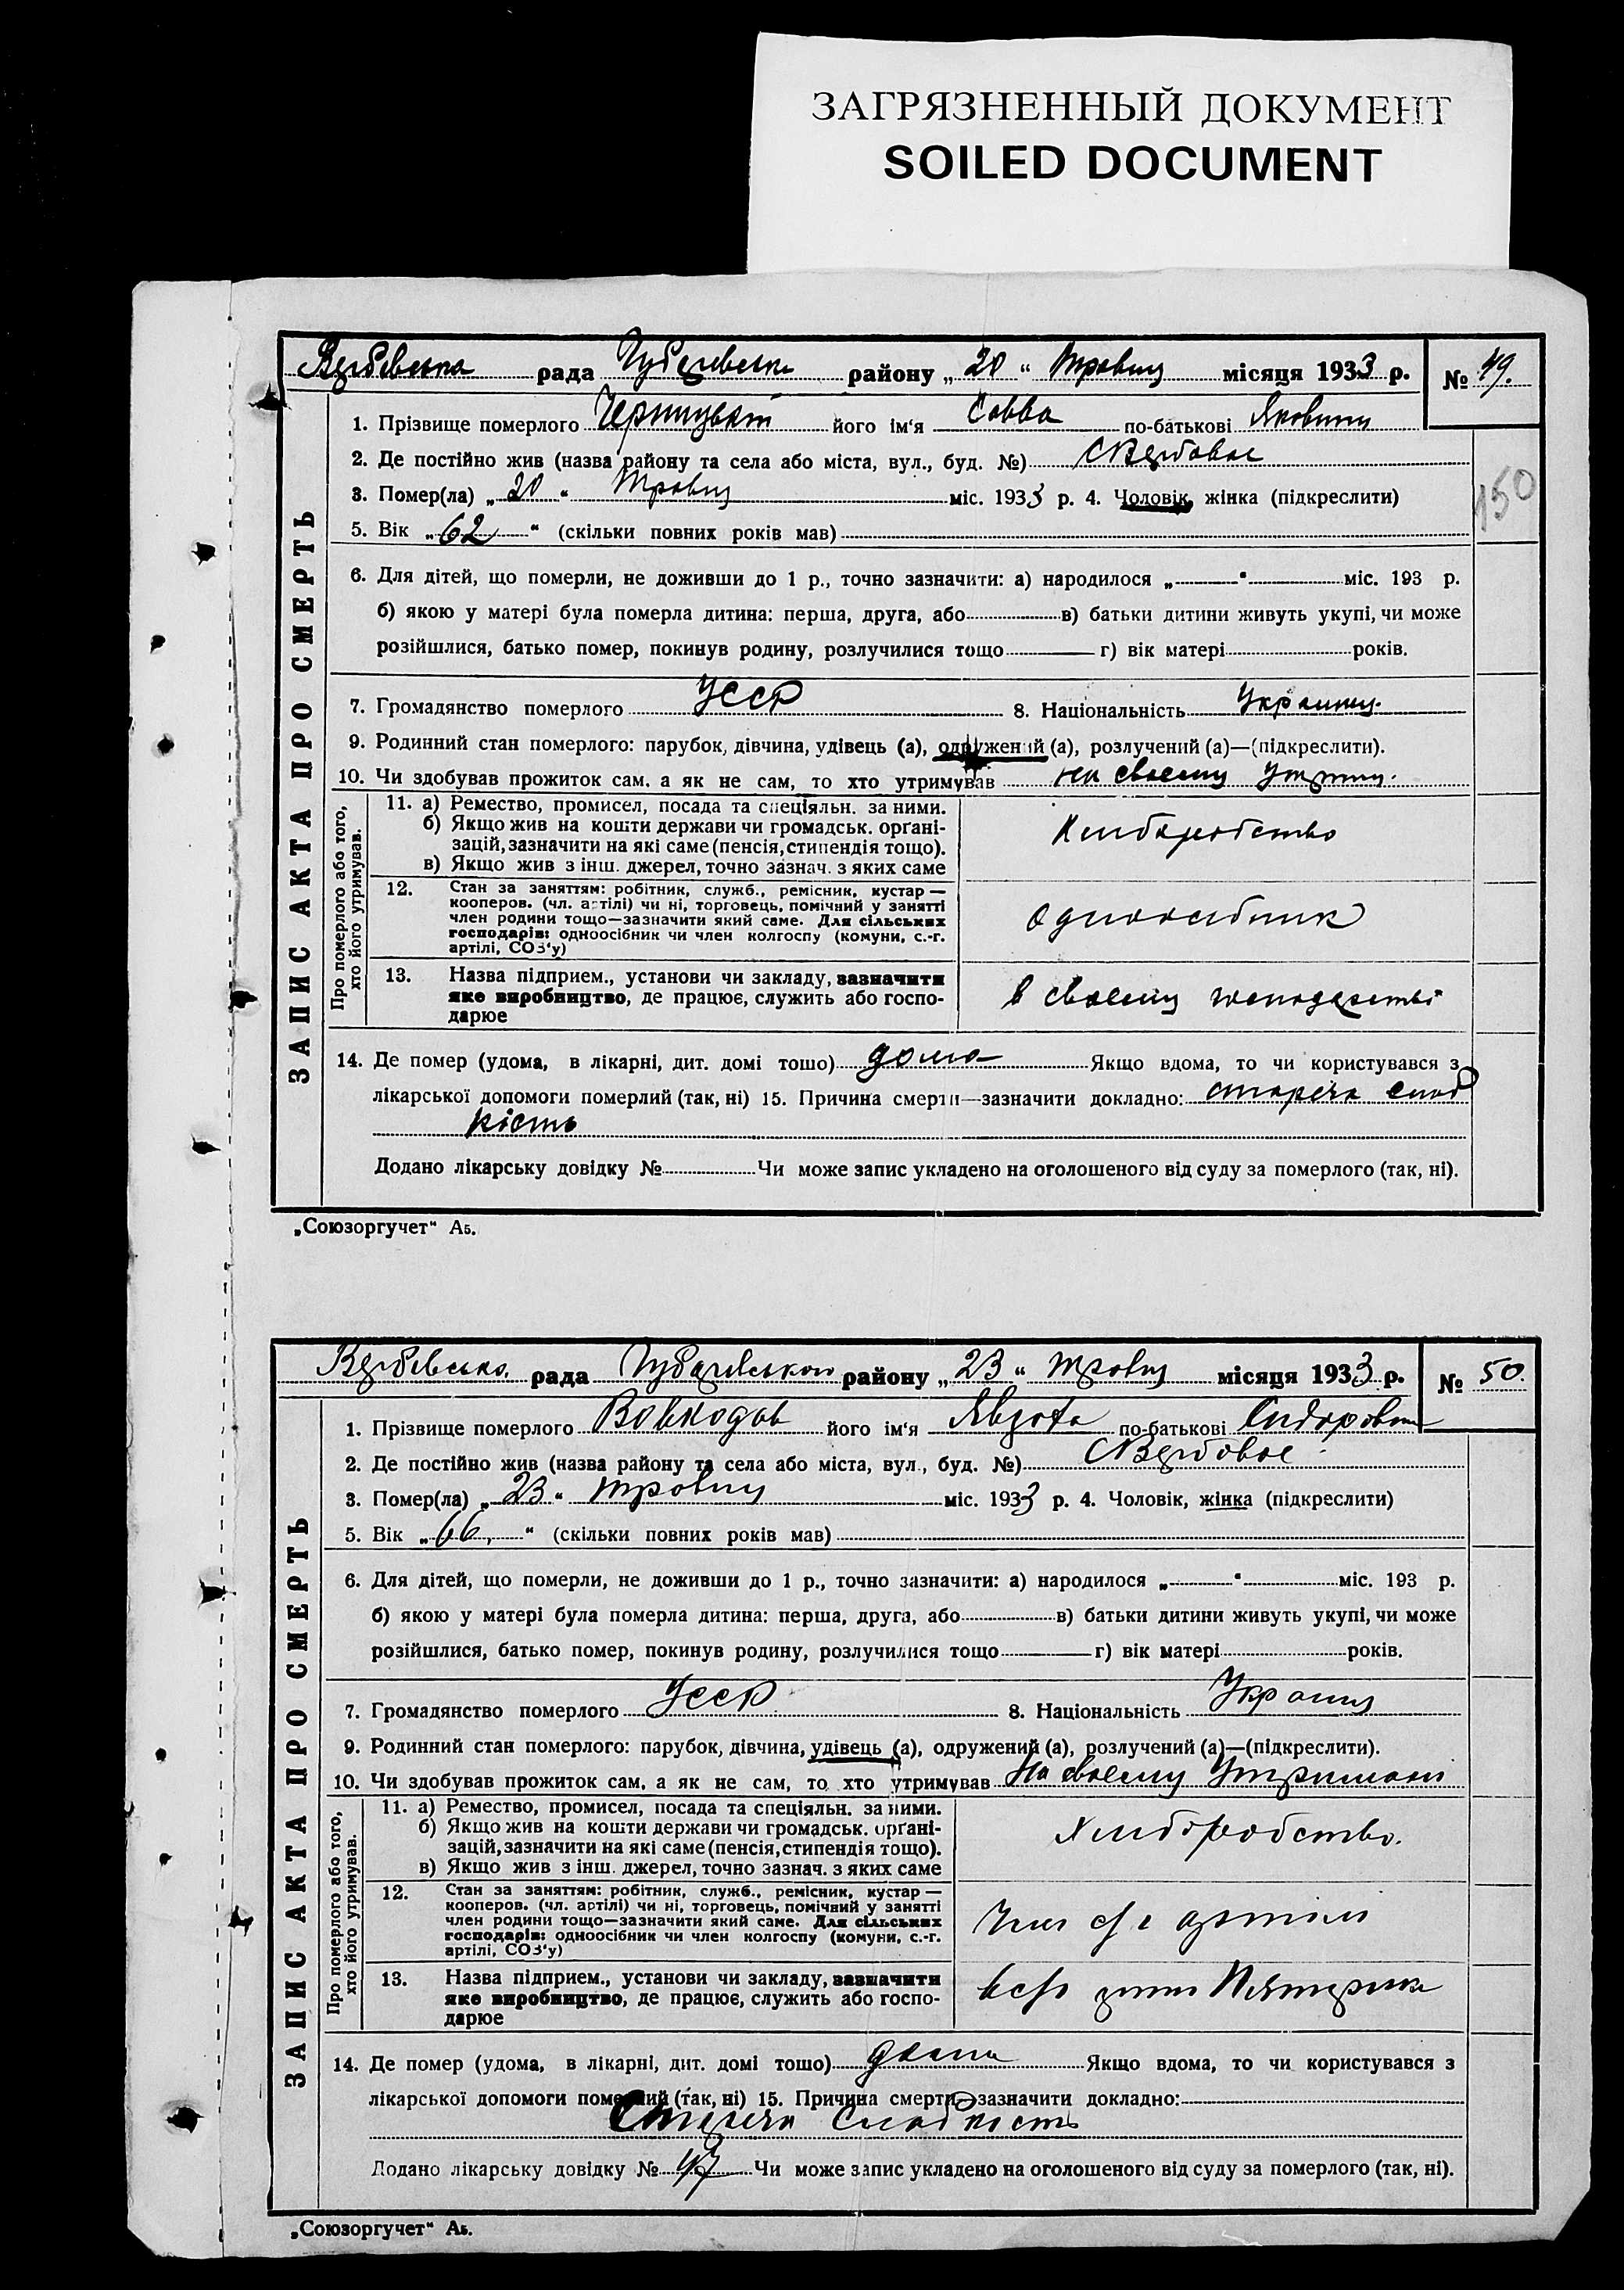 ЗАГРЯЗНЕННЫЙ ДОКУМЕНТ
SOILED DOCUMENT
Вербівська рада району „20“ Травня місяця 1933 р. № 49.
ЗАПИС АКТА ПРО СМЕРТЬ
1. Прізвище померлого його ім'я Савва по-батькові
2. Де постійно жив (назва району та села або міста, вул., буд. №) с Вербовое
3. Помер(ла) „20“ Травня міс. 1933 р. 4. Чоловік, жінка (підкреслити)
150
5. Вік „62“ (скільки повних років мав)
6. Для дітей, що померли, не доживши до 1 р., точно зазначити: а) народилося „ “ міс. 193 р.
б) якою у матері була померла дитина: перша, друга, або в) батьки дитини живуть укупі, чи може
розійшлися, батько помер, покинув родину, розлучилися тощо г) вік матері років.
7. Громадянство померлого УССР 8. Національність
9. Родинний стан померлого: парубок, дівчина, удівець (а), одружений (а), розлучений (а)—(підкреслити).
10. Чи здобував прожиток сам, а як не сам, то хто утримував на своєму
Про померлого або того,
хто його утримував.
11. а) Ремество, промисел, посада та спеціяльн. за ними.
б) Якщо жив на кошти держави чи громадськ. орґані-
зацій, зазначити на які саме (пенсія, стипендія тощо).
в) Якщо жив з інш. джерел, точно зазнач. з яких саме
Хліборобство
12. Стан за заняттям: робітник, служб., ремісник, кустар —
кооперов. (чл. артілі) чи ні, торговець, помічний у занятті
член родини тощо—зазначити який саме. Для сільських
господарів: одноосібник чи член колгоспу (комуни, с.-г.
артілі, СОЗ'у)
одноосібник
13. Назва підприєм., установи чи закладу, зазначити
яке виробництво, де працює, служить або госпо-
дарює
в своєму господарстві
14. Де помер (удома, в лікарні, дит. домі тошо) дома Якщо вдома, то чи користувався з
лікарської допомоги померлий (так, ні) 15. Причина смерти—зазначити докладно: стареча слаб
кість
Додано лікарську довідку № Чи може запис укладено на оголошеного від суду за померлого (так, ні).
„Союзоргучет“ А5.
Вербівська рада району „23“ травня місяця 1933 р. № 50.
ЗАПИС АКТА ПРО СМЕРТЬ
1. Прізвище померлого Вовкодав його ім'я Явдоха по-батькові
2. Де постійно жив (назва району та села або міста, вул., буд. №) с Вербовое
3. Помер(ла) „23“ травня міс. 1933 р. 4. Чоловік, жінка (підкреслити)
5. Вік „66“ (скільки повних років мав)
6. Для дітей, що померли, не доживши до 1 р., точно зазначити: а) народилося „ “ міс. 193 р.
б) якою у матері була померла дитина: перша, друга, або в) батьки дитини живуть укупі, чи може
розійшлися, батько помер, покинув родину, розлучилися тощо г) вік матері років.
7. Громадянство померлого УССР 8. Національність
9. Родинний стан померлого: парубок, дівчина, удівець (а), одружений (а), розлучений (а)—(підкреслити).
10. Чи здобував прожиток сам, а як не сам, то хто утримував На своєму
Про померлого або того,
хто його утримував.
11. а) Ремество, промисел, посада та спеціяльн. за ними.
б) Якщо жив на кошти держави чи громадськ. орґані-
зацій, зазначити на які саме (пенсія, стипендія тощо).
в) Якщо жив з інш. джерел, точно зазнач. з яких саме
Хліборобство.
12. Стан за заняттям: робітник, служб., ремісник, кустар —
кооперов. (чл. артілі) чи ні, торговець, помічний у занятті
член родини тощо—зазначити який саме. Для сільських
господарів: одноосібник чи член колгоспу (комуни, с.-г.
артілі, СОЗ'у)
Член с/г артілі
13. Назва підприєм., установи чи закладу, зазначити
яке виробництво, де працює, служить або госпо-
дарює
14. Де помер (удома, в лікарні, дит. домі тошо) дома Якщо вдома, то чи користувався з
лікарської допомоги померлий (так, ні) 15. Причина смерти—зазначити докладно:
Стареча слабкість
Додано лікарську довідку № Чи може запис укладено на оголошеного від суду за померлого (так, ні).
„Союзоргучет“ А5.